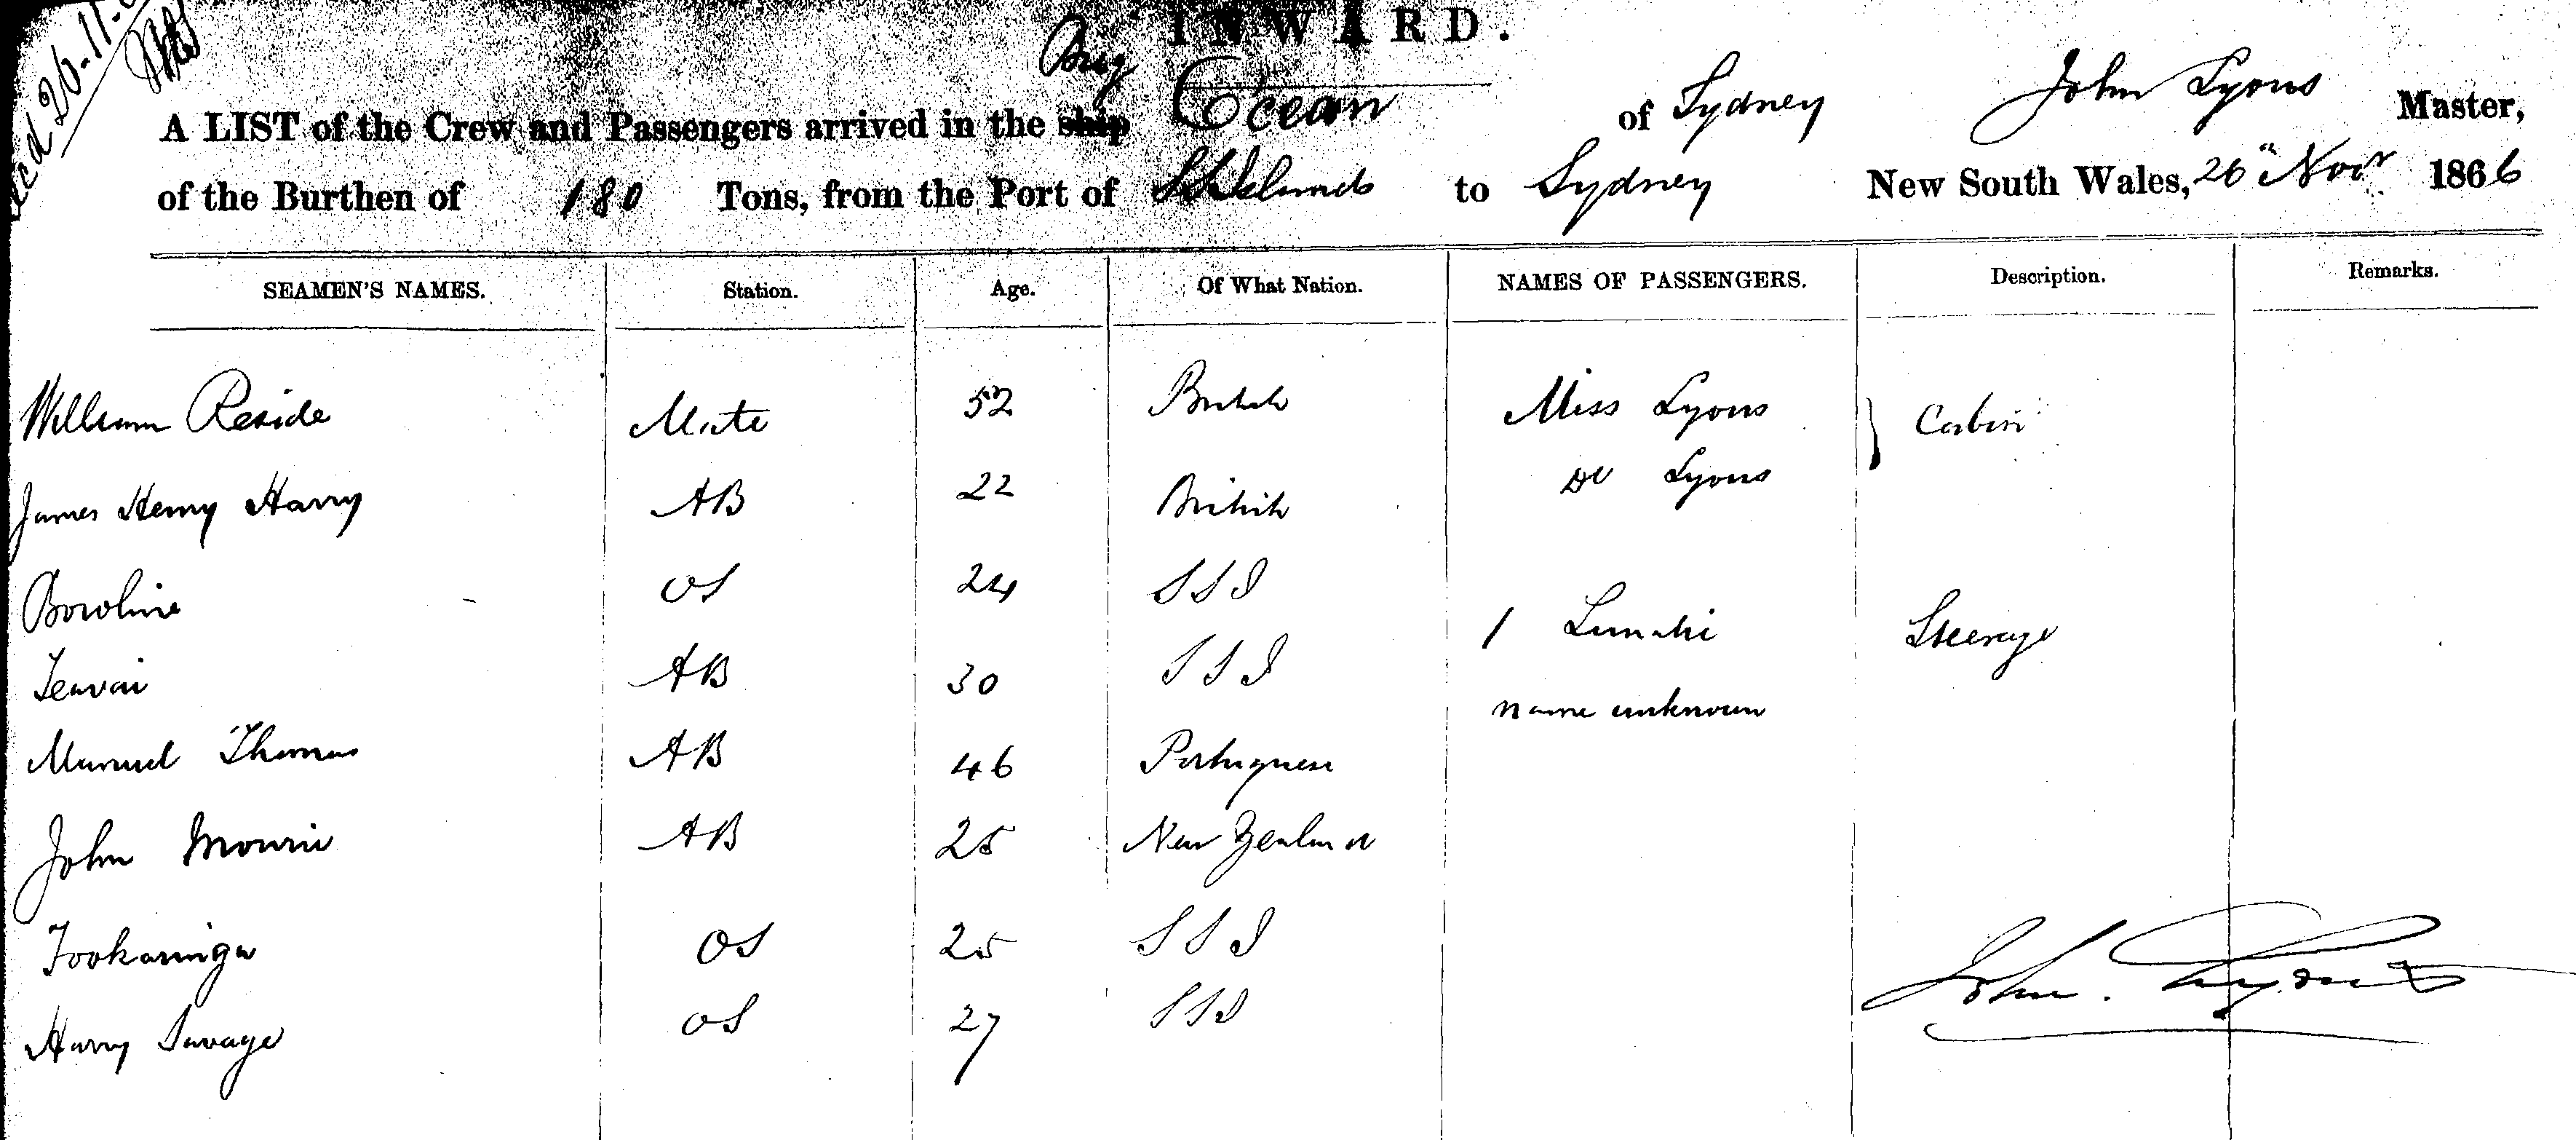 INWARD.
recd 26-11-
A LIST of the Crew and Passengers arrived in the ship Brig Ocean of Sydney John Lyons Master,
of the Burthen of 180 Tons, from the Port of SSIslands to Sydney New South Wales, 26" Novr 1866
SEAMEN'S NAMES. Station. Age. Of What Nation. NAMES OF PASSENGERS. Description. Remarks.
William Reside Mate 52 British Miss Lyons } Cabin
James Henry Harry AB 22 British Do Lyons
Bowline OS 24 SSI 1 Lunatic Steerage
Teavai AB 30 SSI name unknown
Manuel Thomas AB 46 Portuguese
John Mowrie AB 25 New Zealand
Tookaringa OS 25 SSI
Harry Savage OS 27 SSI
John. Lyons